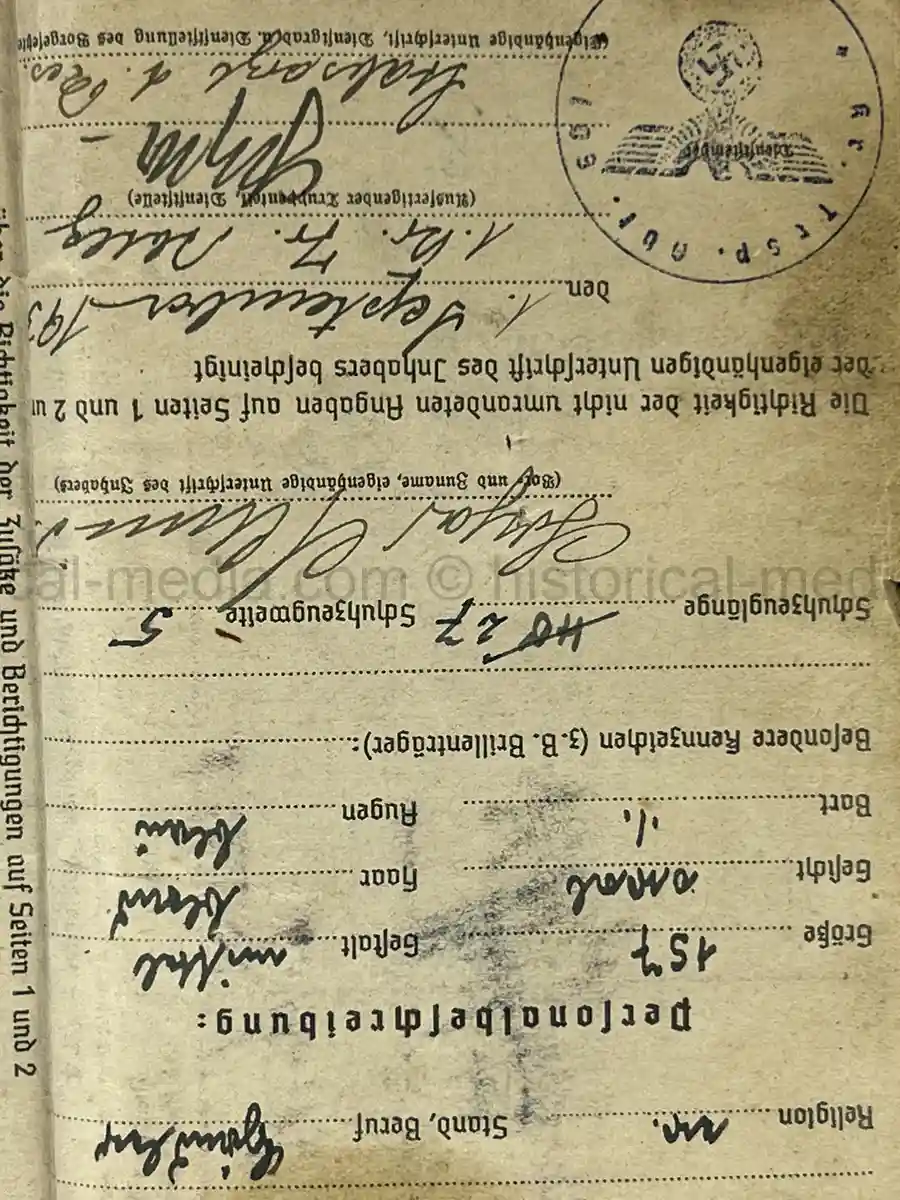 Religion ev. Stand, Beruf Händler
Personalbeschreibung:
Größe 157 Gestalt mittel
Gesicht oval Haar blond
Bart ./. Augen blau
Besondere Kennzeichen (z.B. Brillenträger):
Schuhzeuglänge 40 27 Schuhzeugweite 5
(Vor- und Zuname, eigenhändige Unterschrift des Inhabers)
Die Richtigkeit der nicht umrandeten Angaben auf Seiten 1 und 2 un
der eigenhändigen Unterschrift des Inhabers bescheinigt
den 1. September 193
1. Kr. Tr.
(Ausfertigender Truppenteil, Dienststelle)
Dienststempel
Kr. Trsp. Abt. 591
Stabsarzt d. Res.
(Eigenhändige Unterschrift, Dienstgrad u. Dienststellung des Vorgesetzte
über die Richtigkeit der Zusätze und Berichtigungen auf Seiten 1 und 2
al-media.com © historical-med